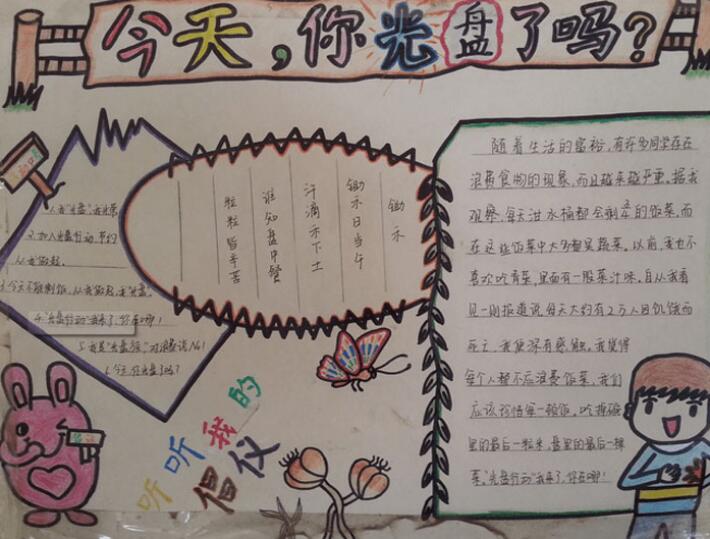 今天，你光盘了吗？
1.我"光盘"，我光荣
2.加入光盘行动，节约
从我做起.
3.今天不能剩饭，从我做起，我"光盘".
4."光盘行动"我来了，你在哪！
5.我是"光盘族"，对浪费说No！
6.今天，你光盘了吗？
锄禾
锄禾日当午
汗滴禾下土
谁知盘中餐
粒粒皆辛苦
随着生活的富裕，有许多同学存在
浪费食物的现象，而且越来越严重。据我
观察，每天泔水桶都会剩的饭菜，而
在这些饭菜中大多都是蔬菜。以前，我也不
喜欢吃青菜，里面有一股菜汁味。自从我看
见一则报道说每天大约有2万人因饥饿而
死亡，我便深有感触。我觉得
每个人都不应浪费饭菜，我们
应该珍惜每一顿饭，吃掉碗
里的最后一粒米，盘里的最后一棵
菜。"光盘行动"我来了，你在哪！
听听我的
倡仪